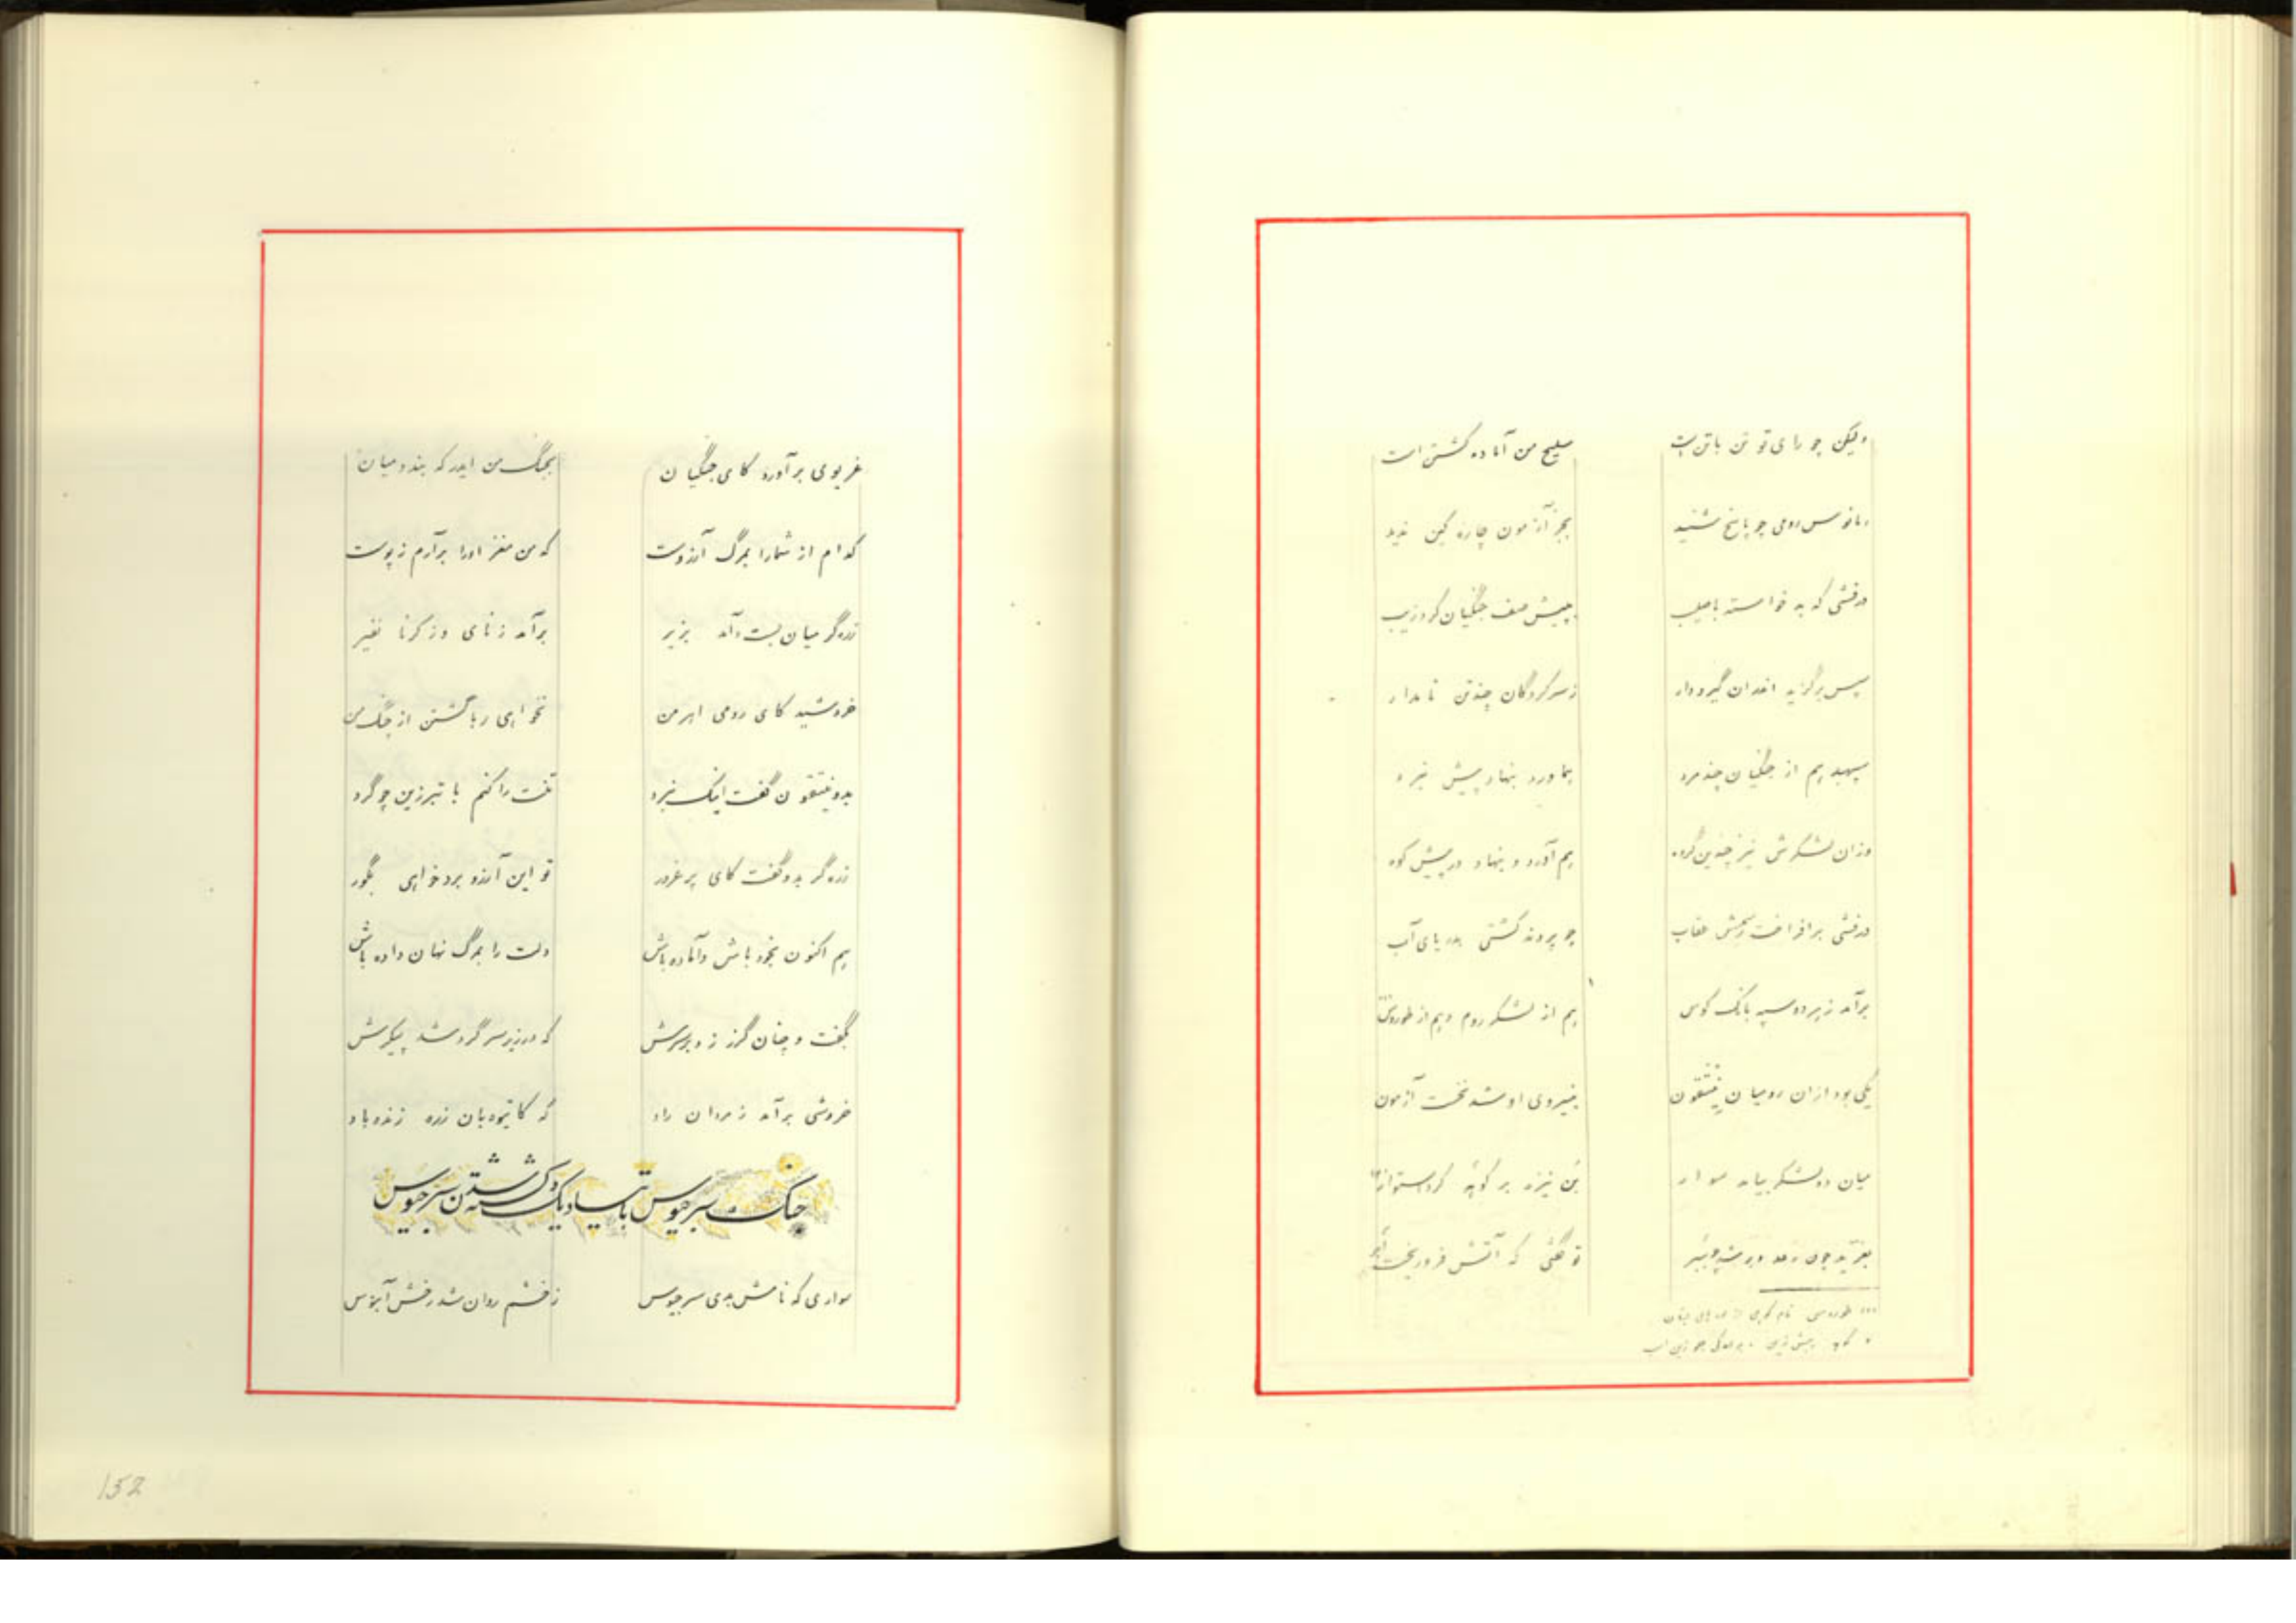 ولیکن چو رای تو تن باتن است
سلیح من آماده کشتن است
رومی چو پاسخ شنید
بجز آزمون چاره کین ندید
درفشی که بد خواسته باصلیب
به پیش صف جنگیان کرد زیب
سپس برگزید اندران گیر و دار
ز سرکردگان چندتن نامدار
سپهبد هم از جنگیان چند مرد
بیاورد بنهاد پیش نبرد
وزان لشکرش نیز چندین گروه
هم آورد و بنهاد در پیش کوه
درفشی برافراخت عقاب
چو پرونده کشتی بدریای آب
برآمد زهر دو سپه بانگ کوس
هم از لشکر روم و هم از طوروس
یکی بود ازان رومیان
بنیروی او شد نخست آزمون
میان دو لشکر بیامد سوار
بن نیزه بر کوهه کرد استوار
بغرید چون رعد و بر شد چو ببر
تو گفتی که آتش فرو ریخت ابر
طوروس نام کوهی
کوهه پیش زین
غریوی برآورد کای جنگیان
بجنگ من ایدر که بندد میان
کدام از شما را بمرگ آرزوست
که من مغز او را برآرم ز پوست
زره گر میان بست و آمد بزیر
برآمد ز نای و ز کرنا نفیر
خروشید کای رومی اهرمن
نخواهی رها گشتن از چنگ من
بدو گفت اینک نبرد
تنت را کنم با تبرزین چو گرد
زره گر بدو گفت کای پر غرور
تو این آرزو برد خواهی بگور
هم اکنون بخود باش و آماده باش
دلت را بمرگ نهان داده باش
بگفت و چنان گرز زد بر سرش
که در زیر سر گرد شد پیکرش
خروشی برآمد ز مردان راد
که کاتیوه بان زره زنده باد
جنگ سرجیوس با تیسادیک و کشته شدن سرجیوس
سواری که نامش بدی سرجیوس
ز خشم روان شد رخش آبنوس
152